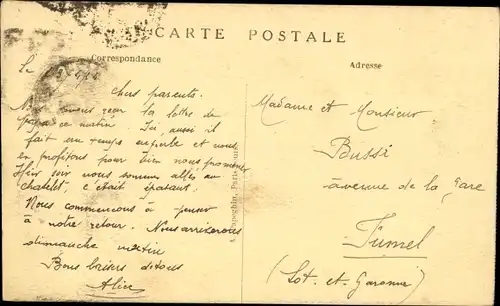 CARTE POSTALE
Correspondance
Adresse
Le
Chers parents.
Nous avons reçu la lettre de
papa ce matin. Ici, aussi il
fait un temps superbe et nous
en profitons pour bien nous promener
Hier soir nous sommes allés au
chatelet, c'était épatant.
Nous commencons à penser
à notre retour. Nous arriverons
dimanche matin
Bons baisers de tous
Alice
Madame et Monsieur
Bussi
avenue de la gare
Fumel
(Lot-et-Garonne)